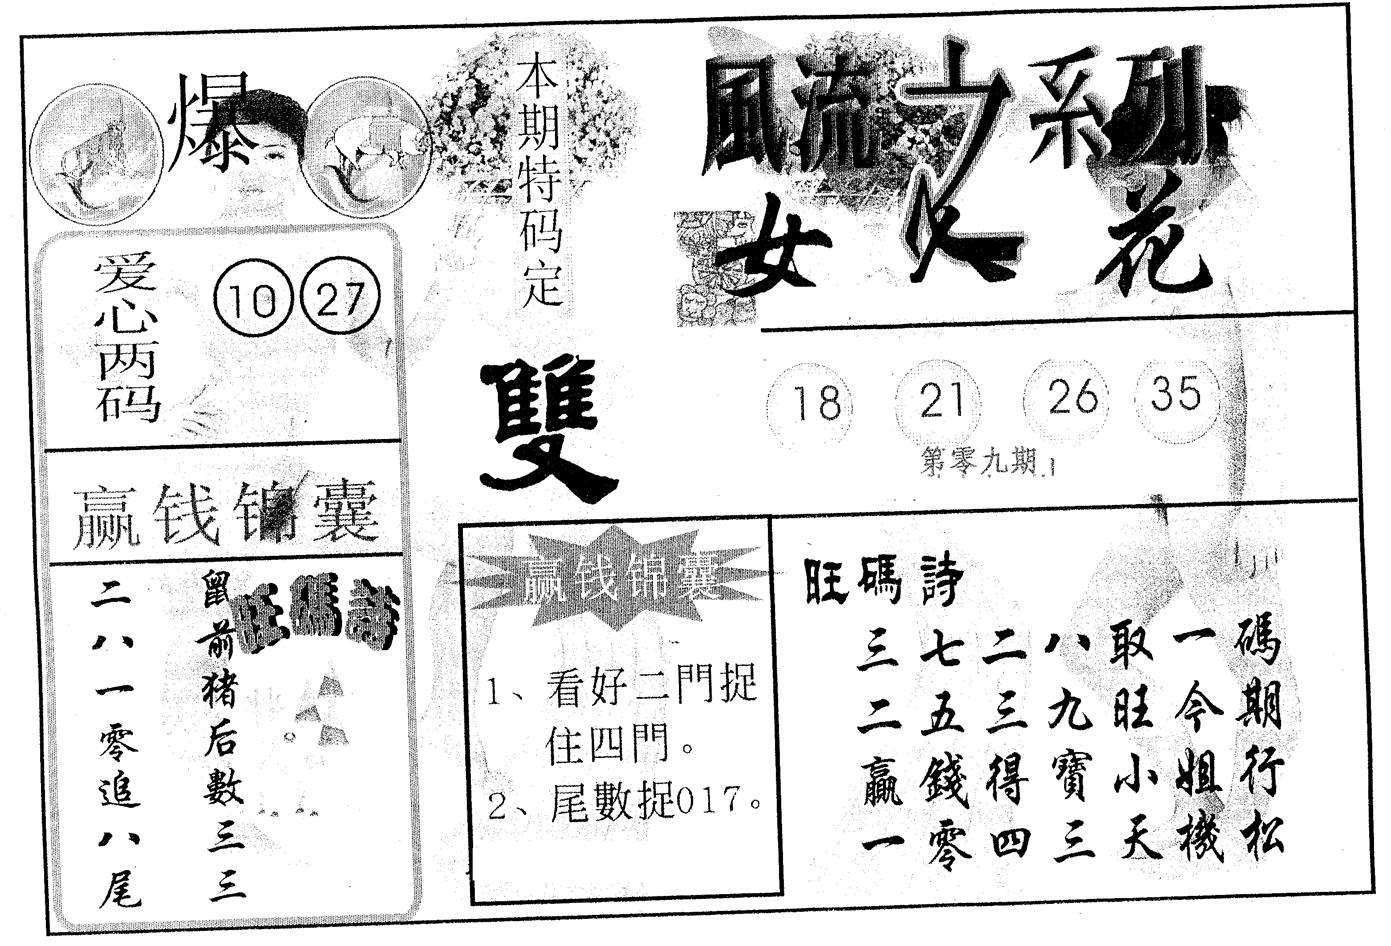 爆
爱心两码
10 27
赢钱锦囊
旺碼詩
鼠前猪后數三三
二八一零追八尾
本期特码定
雙
風流之系列
女人花
18 21 26 35
第零九期
赢钱锦囊
1、看好二門捉
住四門。
2、尾數捉017。
旺碼詩
三七二八取一碼
二五三九旺今期
贏錢得寶小姐行
一零四三天機松